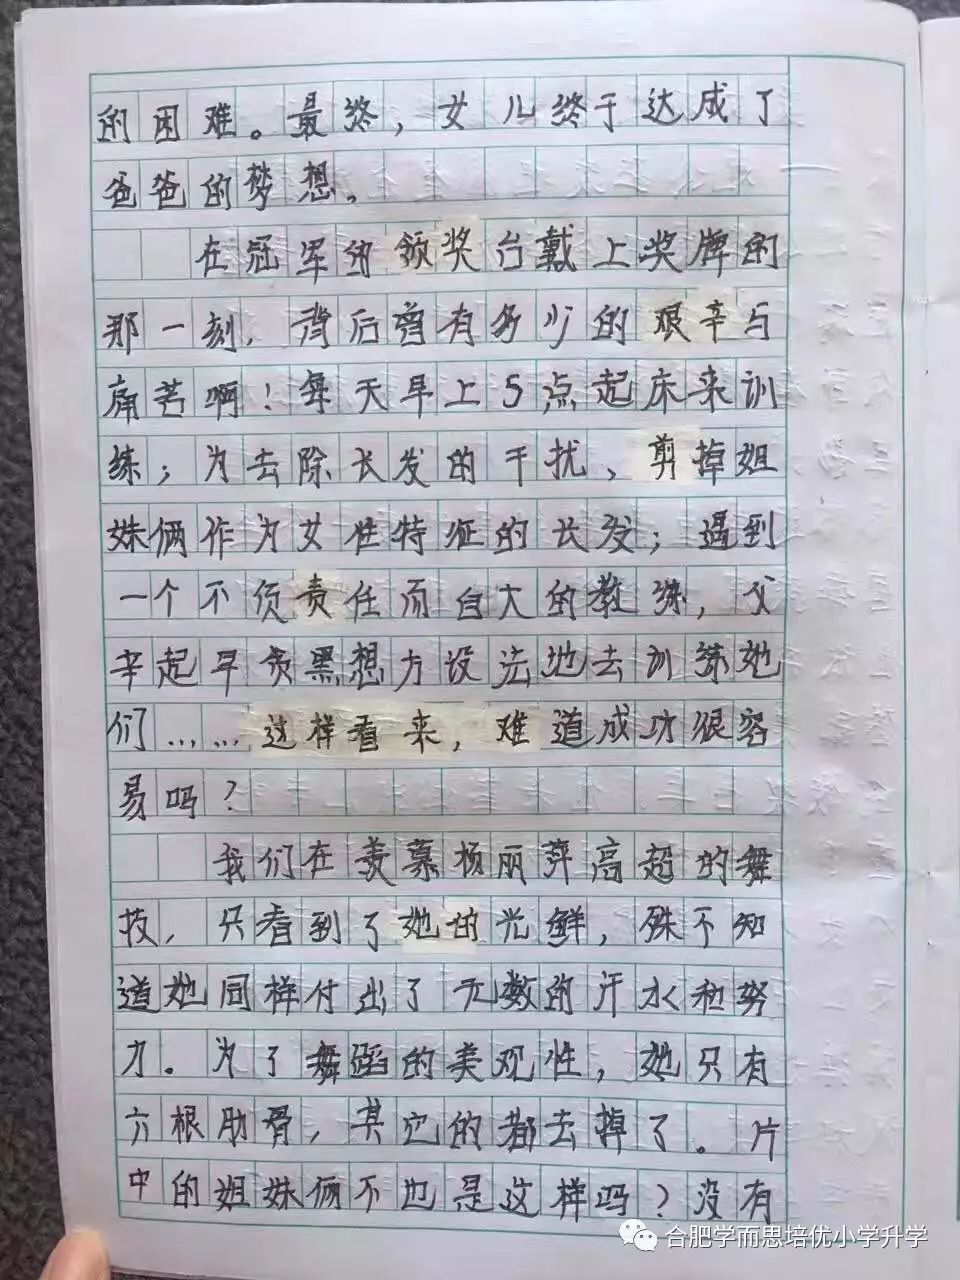 的困难。最终，女儿终于达成了
爸爸的梦想。
在冠军的领奖台戴上奖牌的
那一刻，背后曾有多少的艰辛与
痛苦啊！每天早上5点起床来训
练；为去除长发的干扰，剪掉姐
妹俩作为女性特征的长发；遇到
一个不负责任而自大的教练，父
辛起早贪黑想方设法地去训练她
们……这样看来，难道成功很容
易吗？
我们在羡慕杨丽萍高超的舞
技，只看到了她的光鲜，殊不知
道她同样付出了无数的汗水和努
力。为了舞蹈的美观性，她只有
六根肋骨，其它的都去掉了。片
中的姐妹俩不也是这样吗？没有
合肥学而思培优小学升学